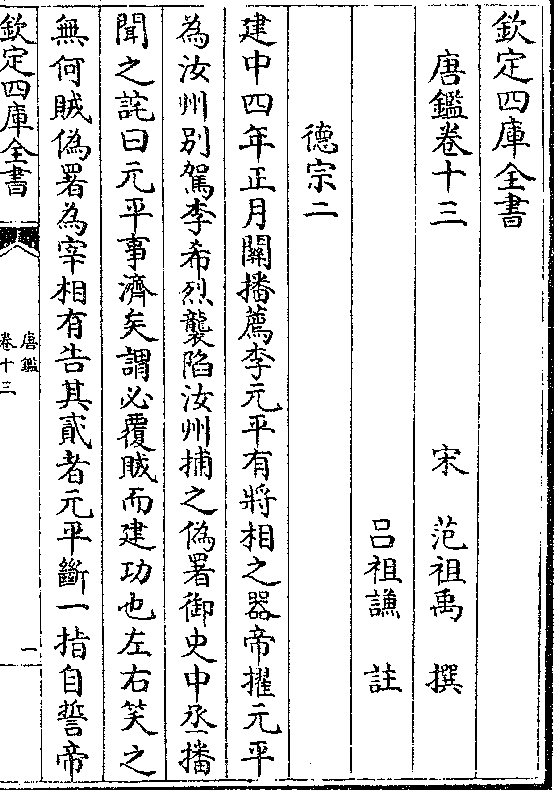 欽定四庫全書
唐鑑卷十三
宋 范祖禹 撰
呂祖謙 註
德宗二
建中四年正月關播薦李元平有將相之器帝擢元平
為汝州別駕李希烈襲陷汝州捕之偽署御史中丞播
聞之詫曰元平事濟矣謂必覆賊而建功也左右笑之
無何賊偽署為宰相有告其貳者元平斷一指自誓帝
欽定四庫全書
唐鑑
卷十三
一